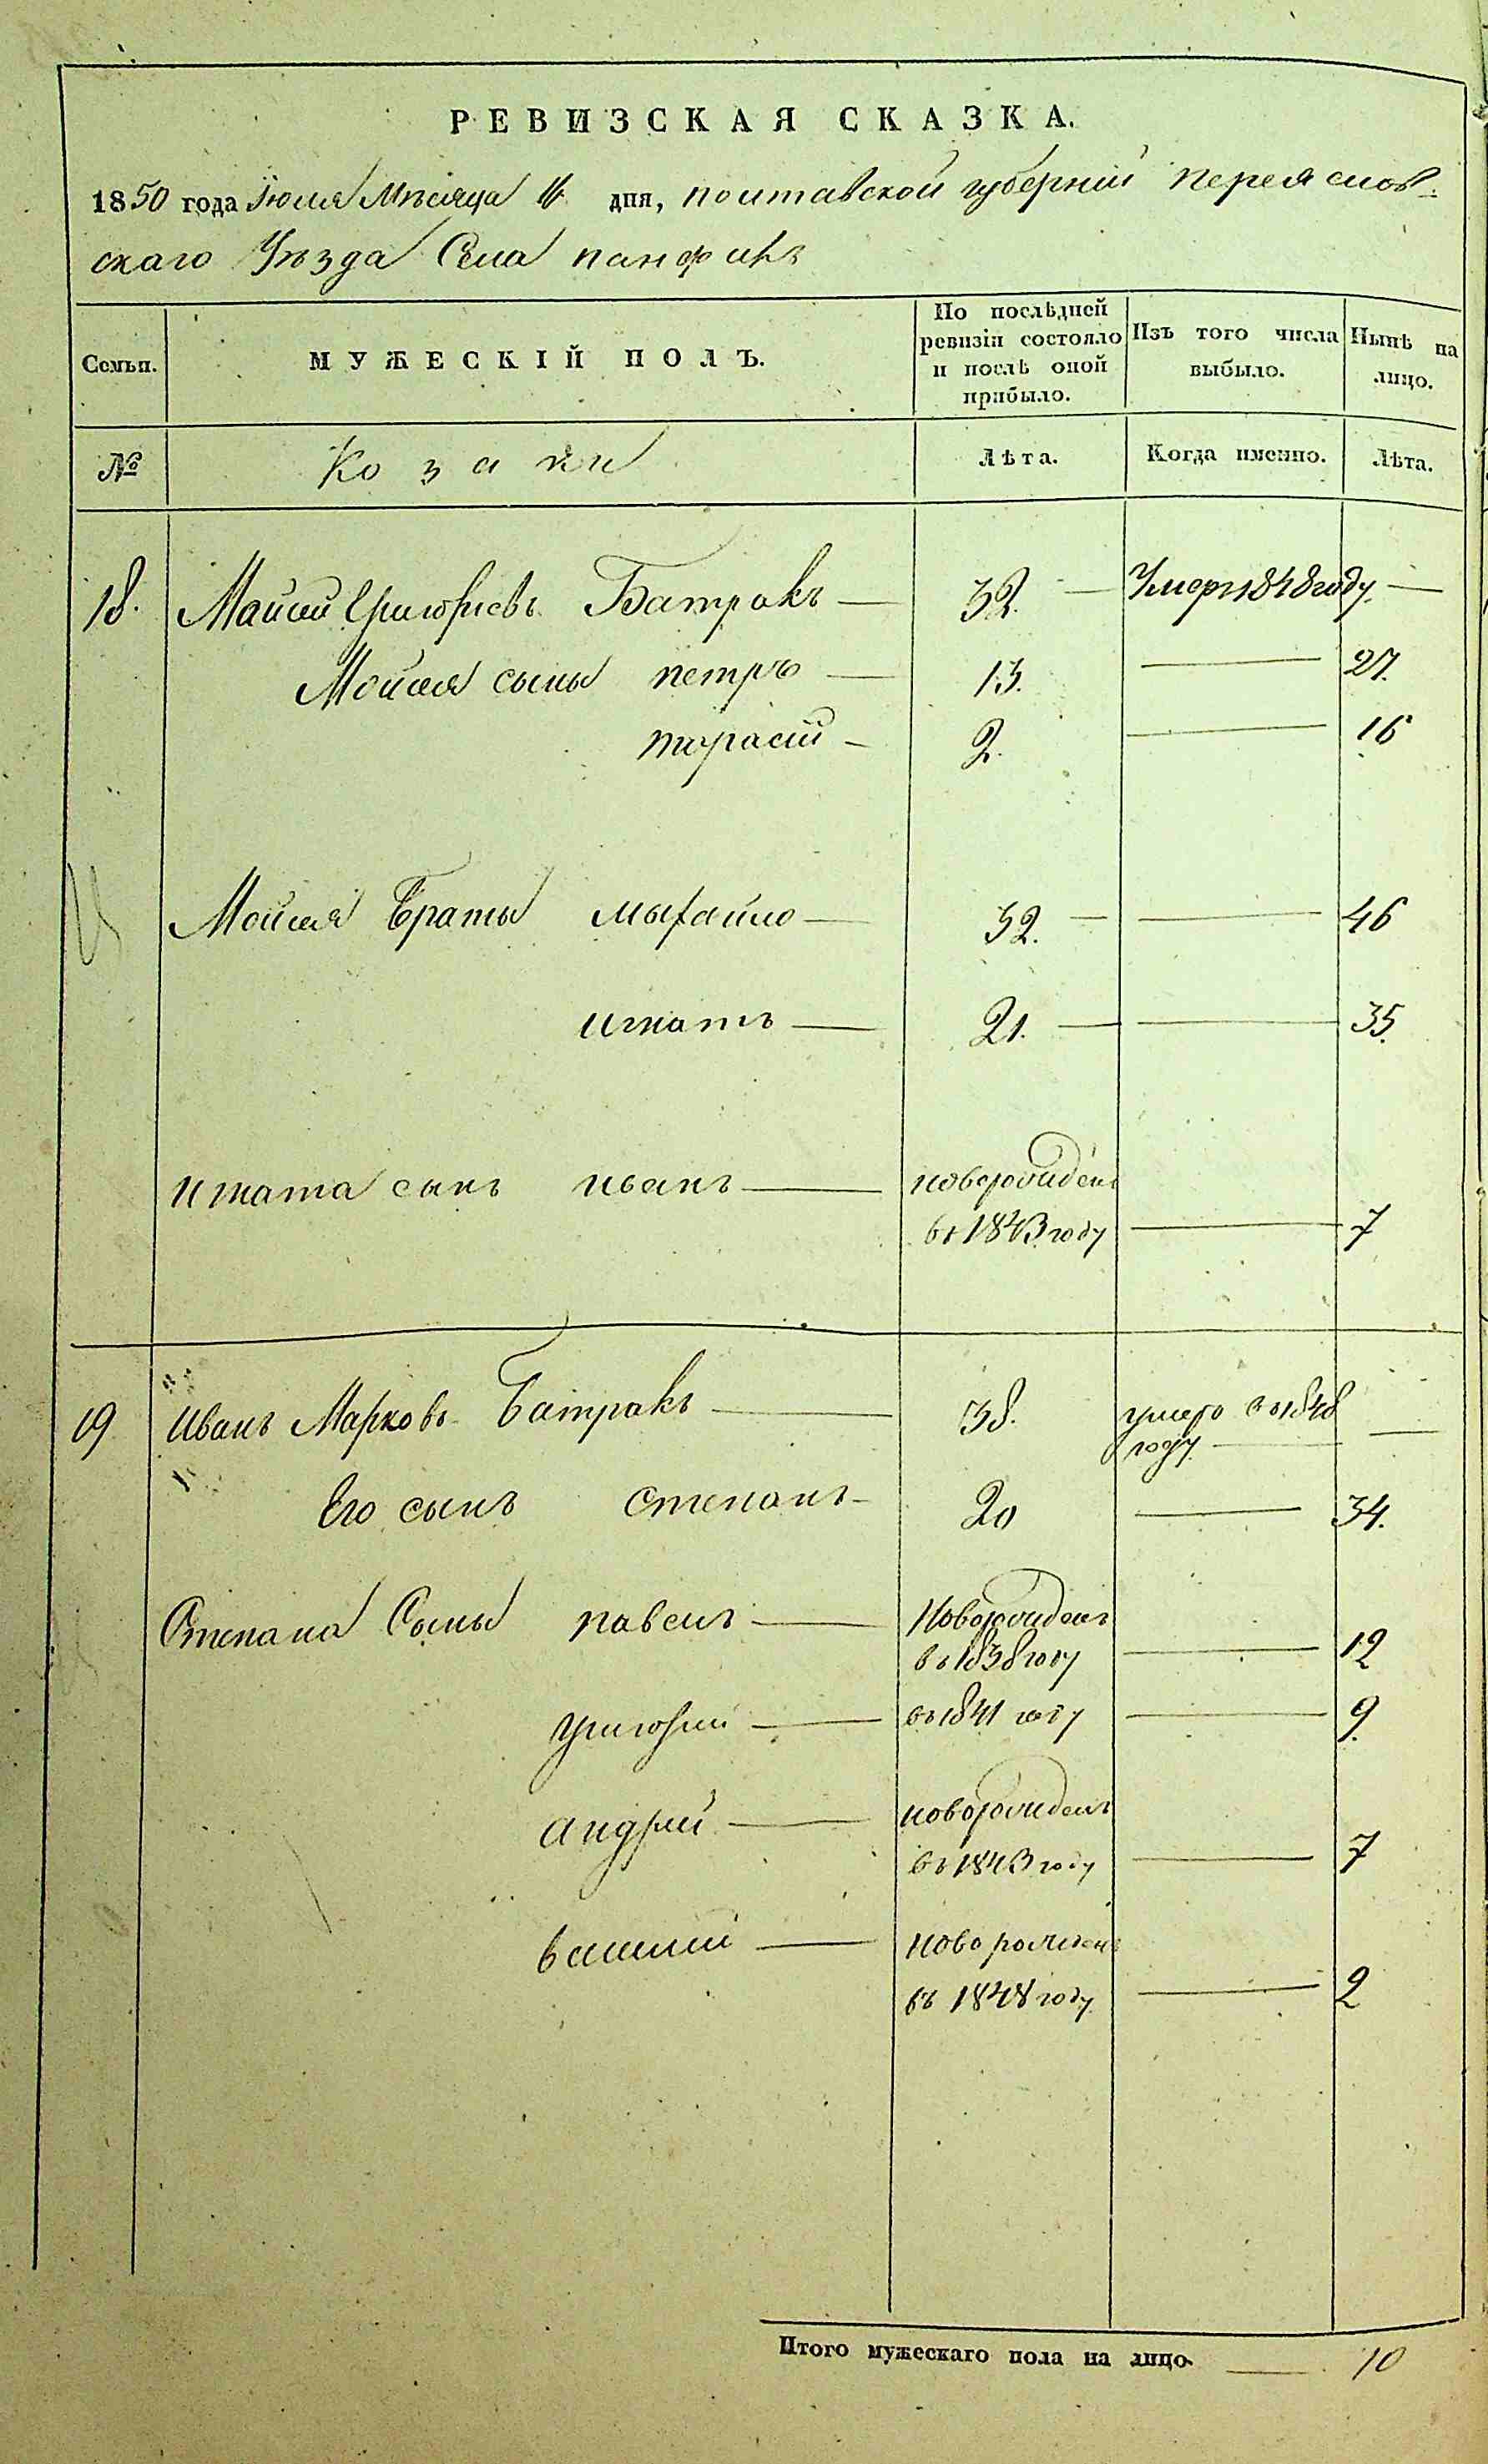 РЕВИЗСКАЯ СКАЗКА.
1850 года Июля Мѣсяца дня, полтавской губерніи переяслов-
скаго Уѣзда Села панфилъ
Семьи. МУЖЕСКІЙ ПОЛЪ. По послѣдней ревизіи состояло и послѣ оной прибыло. Изъ того числа выбыло. Нынѣ на лицо.
№ Козаки Лѣта. Когда именно. Лѣта.
18. Мойсей Григорьевъ Батракъ — 32. — Умеръ 1848 году. —
Мойсея сыны петръ — 13. — 27.
тарасій — 2. — 16
Мойсея Браты михайло — 32. — — 46
игнатъ — 21. — — 35.
игната сынъ иванъ — новорожденъ
въ 1843 году — 7
19 иванъ Марковъ Батракъ — 38. умеръ въ 1848 —
году. —
Его сынъ степанъ — 20 — 34.
Степана Сыны павелъ — Новорожденъ
въ 1838 году — 12
григорій — въ 1841 году — 9.
андрій — новорожденъ
въ 1843 году — 7
василій — новорожденъ
въ 1848 году. — 2
Итого мужескаго пола на лицо. — 10